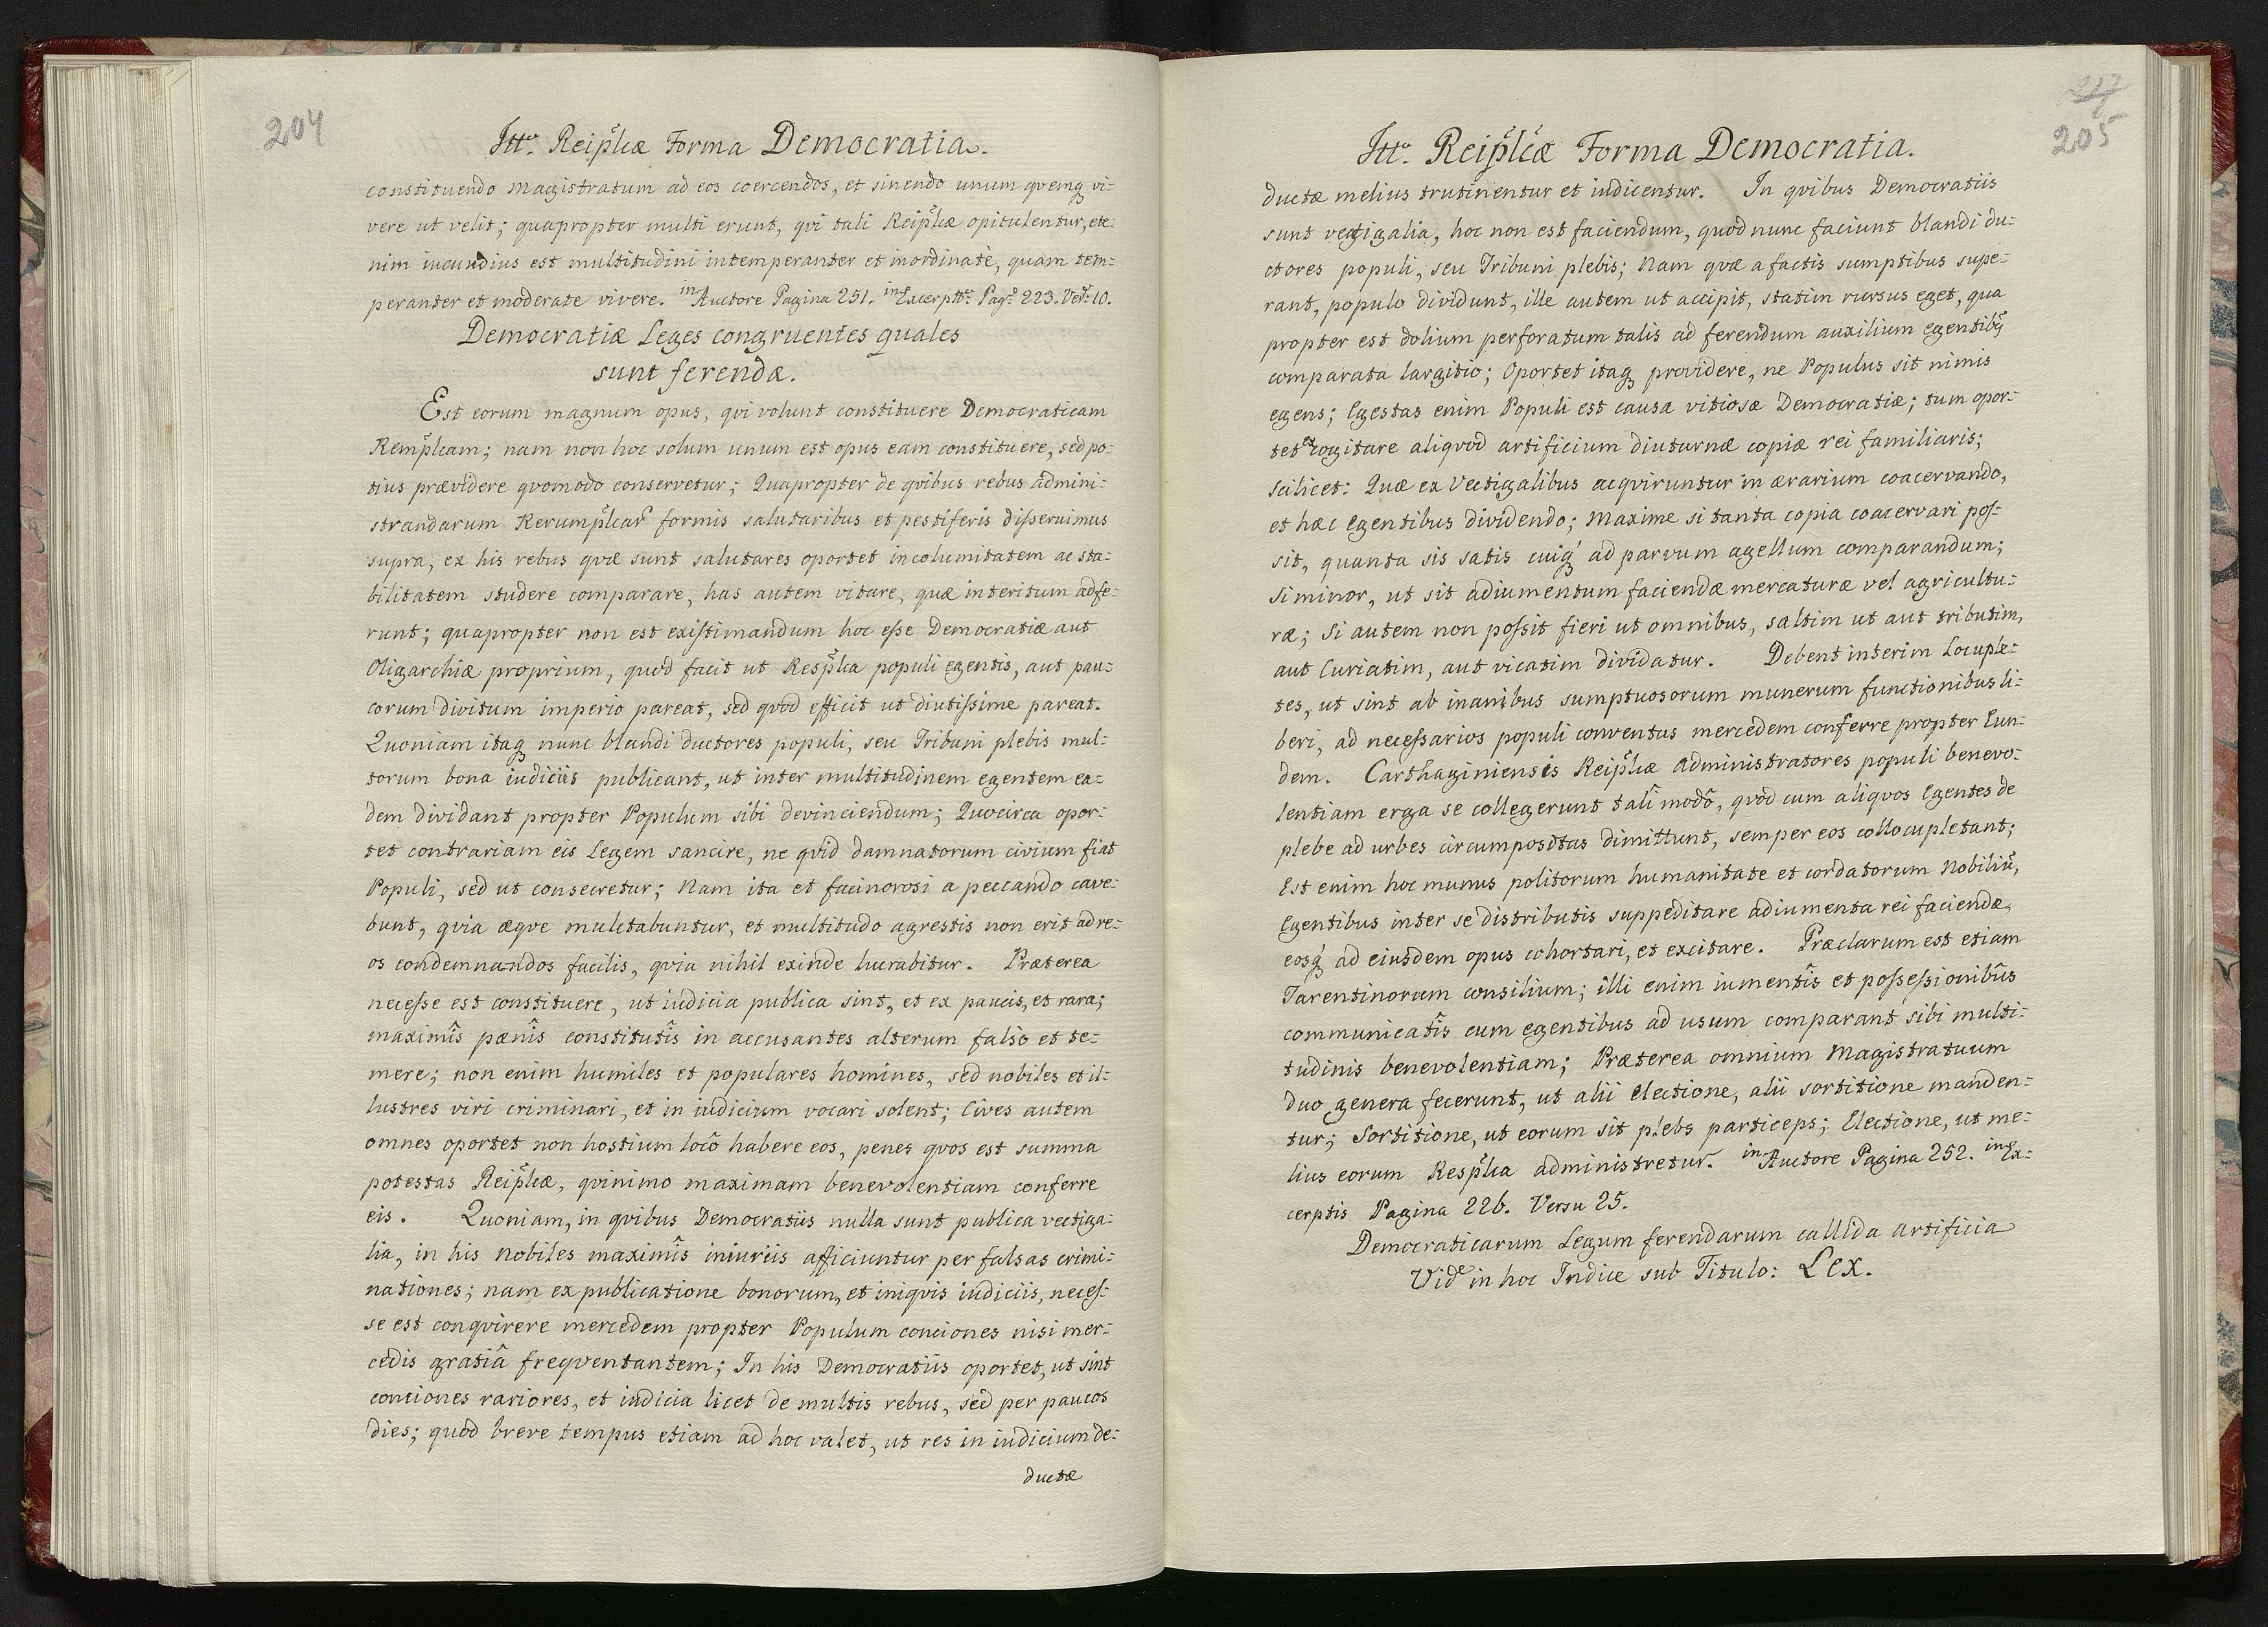 204
Itt. Reiplcæ Forma Democratia.
constituendo Magistratum ad eos coercendos, et sinendo unum qvemq vi:
vere ut velit; quapropter multi erunt, qvi tali Reiplcæ opitulentur, ete:
nim iucundius est multitudini intemperanter et inordinatè, quam tem:
peranter et moderate vivere. in Auctore Pagina 251. in Excerptis Pag. 223. Ver. 10.
Democratiæ Leges congruentes quales
sunt ferendæ.
Est eorum magnum opus, qvi volunt constituere Democraticam
Remplcam; nam non hoc solum unum est opus eam constituere, sed po:
tius prævidere qvomodo conservetur; Quapropter de qvibus rebus admini:
strandarum Rerumplcar formis salutaribus et pestiferis disseruimus
supra, ex his rebus qvæ sunt salutares oportet incolumitatem ac sta:
bilitatem studere comparare, has autem vitare, quæ interitum adfe:
runt; quapropter non est existimandum hoc esse Democratiæ aut
Oligarchiæ proprium, quod facit ut Resplca populi egentis, aut pau:
corum divitum imperio pareat, sed qvod efficit ut diutissime pareat.
Quoniam itaq nunc blandi ductores populi, seu Tribuni plebis mul:
torum bona iudiciis publicant, ut inter multitudinem egentem ea:
dem dividant propter Populum sibi devinciendum; Quocirca opor:
tet contrariam eis Legem sancire, ne qvid damnatorum civium fiat
Populi, sed ut consecretur; Nam ita et facinorosi a peccando cave:
bunt, qvia æqve mulctabuntur, et multitudo agrestis non erit ad re:
os condemnandos facilis, qvia nihil exinde lucrabitur. Præterea
necesse est constituere, ut iudicia publica sint, et ex paucis, et rara;
maximîs pænîs constitutîs in accusantes alterum falsò et te:
mere; non enim humiles et populares homines, sed nobiles et il:
lustres viri criminari, et in iudicium vocari solent; Cives autem
omnes oportet non hostium locô habere eos, penes qvos est summa
potestas Reiplcæ, qvinimo maximam benevolentiam conferre
eis. Quoniam, in qvibus Democratiis nulla sunt publica vectiga:
lia, in his Nobiles maximîs iniuriis afficiuntur per falsas crimi:
nationes; nam ex publicatione bonorum, et iniqvis iudiciis, neces:
se est conqvirere mercedem propter Populum conciones nisi mer:
cedis gratiâ freqventantem; In his Democratiis oportet, ut sint
conciones rariores, et iudicia licet de multis rebus, sed per paucos
dies; quod breve tempus etiam ad hoc valet, ut res in iudicium de:
ductæ
205
Itt. Reiplcæ Forma Democratia.
ductæ melius trutinentur et iudicentur. In qvibus Democratiis
sunt vectigalia, hoc non est faciendum, quod nunc faciunt blandi du:
ctores populi, seu Tribuni plebis; Nam qvæ a factis sumptibus supe:
rant, populo dividunt, ille autem ut accipit, statim rursus eget, qua
propter est dolium perforatum talis ad ferendum auxilium egentibq
comparata largitio; Oportet itaq providere, ne Populus sit nimis
egens; Egestas enim Populi est causa vitiosæ Democratiæ; tum opor:
tet excogitare aliqvod artificium diuturnæ copiæ rei familiaris;
scilicet: Quæ ex Vectigalibus acqviruntur in ærarium coacervando,
et hæc Egentibus dividendo; Maxime si tanta copia coacervari pos:
sit, quanta sis satis cuiq ad parvum agellum comparandum;
si minor, ut sit adiumentum faciendæ mercaturæ vel agricultu:
ræ; Si autem non possit fieri ut omnibus, saltim ut aut tributim,
aut Curiatim, aut vicatim dividatur. Debent interim Locuple:
tes, ut sint ab inanibus sumptuosorum munerum functionibus li:
beri, ad necessarios populi conventus mercedem conferre propter Eun:
dem. Carthaginiensis Reiplcæ administratores populi benevo:
lentiam erga se collegerunt talî modô, qvod cum aliqvos Egentes de
plebe ad urbes circumpositas dimittunt, semper eos collocupletant;
Est enim hoc munus politorum humanitate et cordatorum Nobiliũ,
Egentibus inter se distributis suppeditare adiumenta rei faciendæ,
eosq ad eiusdem opus cohortari, et excitare. Præclarum est etiam
Tarentinorum consilium; illi enim iumentîs et possessionibûs
communicatîs cum egentibus ad usum comparant sibi multi:
tudinis benevolentiam; Præterea omnium Magistratuum
duo genera fecerunt, ut alii Electione, alii sortitione manden:
tur; Sortitione, ut eorum sit plebs particeps; Electione, ut me:
lius eorum Resplca administretur. in Auctore Pagina 252. in Ex:
cerptis Pagina 226. Versu 25.
Democraticarum Legum ferendarum callida artificia
Vide in hoc Indice sub Titulo: Lex.